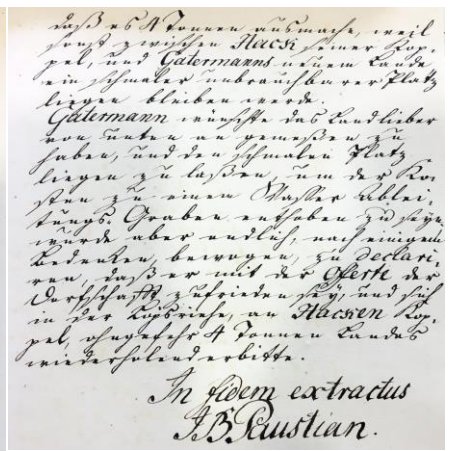 daß es 4 Tonnen ausmache, weil
sonst zwischen Hacks seiner Kop-
pel, und Gatermanns neuem Lande
ein schmaler unbrauchbarer Platz
liegen bleiben werde.
Gatermann wünschte das Land lieber
von unten an gemeßen zu
haben, und den schmalen Platz
liegen zu laßen, um der Ko-
sten zu einem Wasser Ablei-
tungs-Graben enthoben zu seyn,
wurde aber endlich, nach einigem
Bedenken, bewogen, zu declari-
ren, daß er mit der Offerte der
Dorfschafft zufrieden sey, und sich
in der, an Hacken Kop-
pel, ohngefehr 4 Tonnen Landes
wiederholend erbitte.
In fidem extractus
J.B. Paustian.